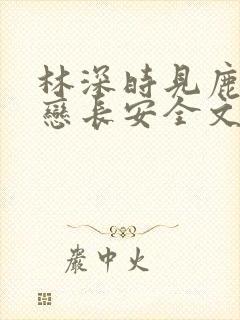 林深時見鹿
戀長安全文
嚴中火